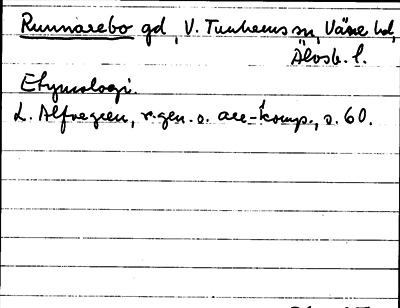 Runnarebo gd, V. Tunhems sn, Väne hd,
Älvsb. l.
Etymologi.
L. Alfvegren, r-gen. o. ace-komp., s. 60.